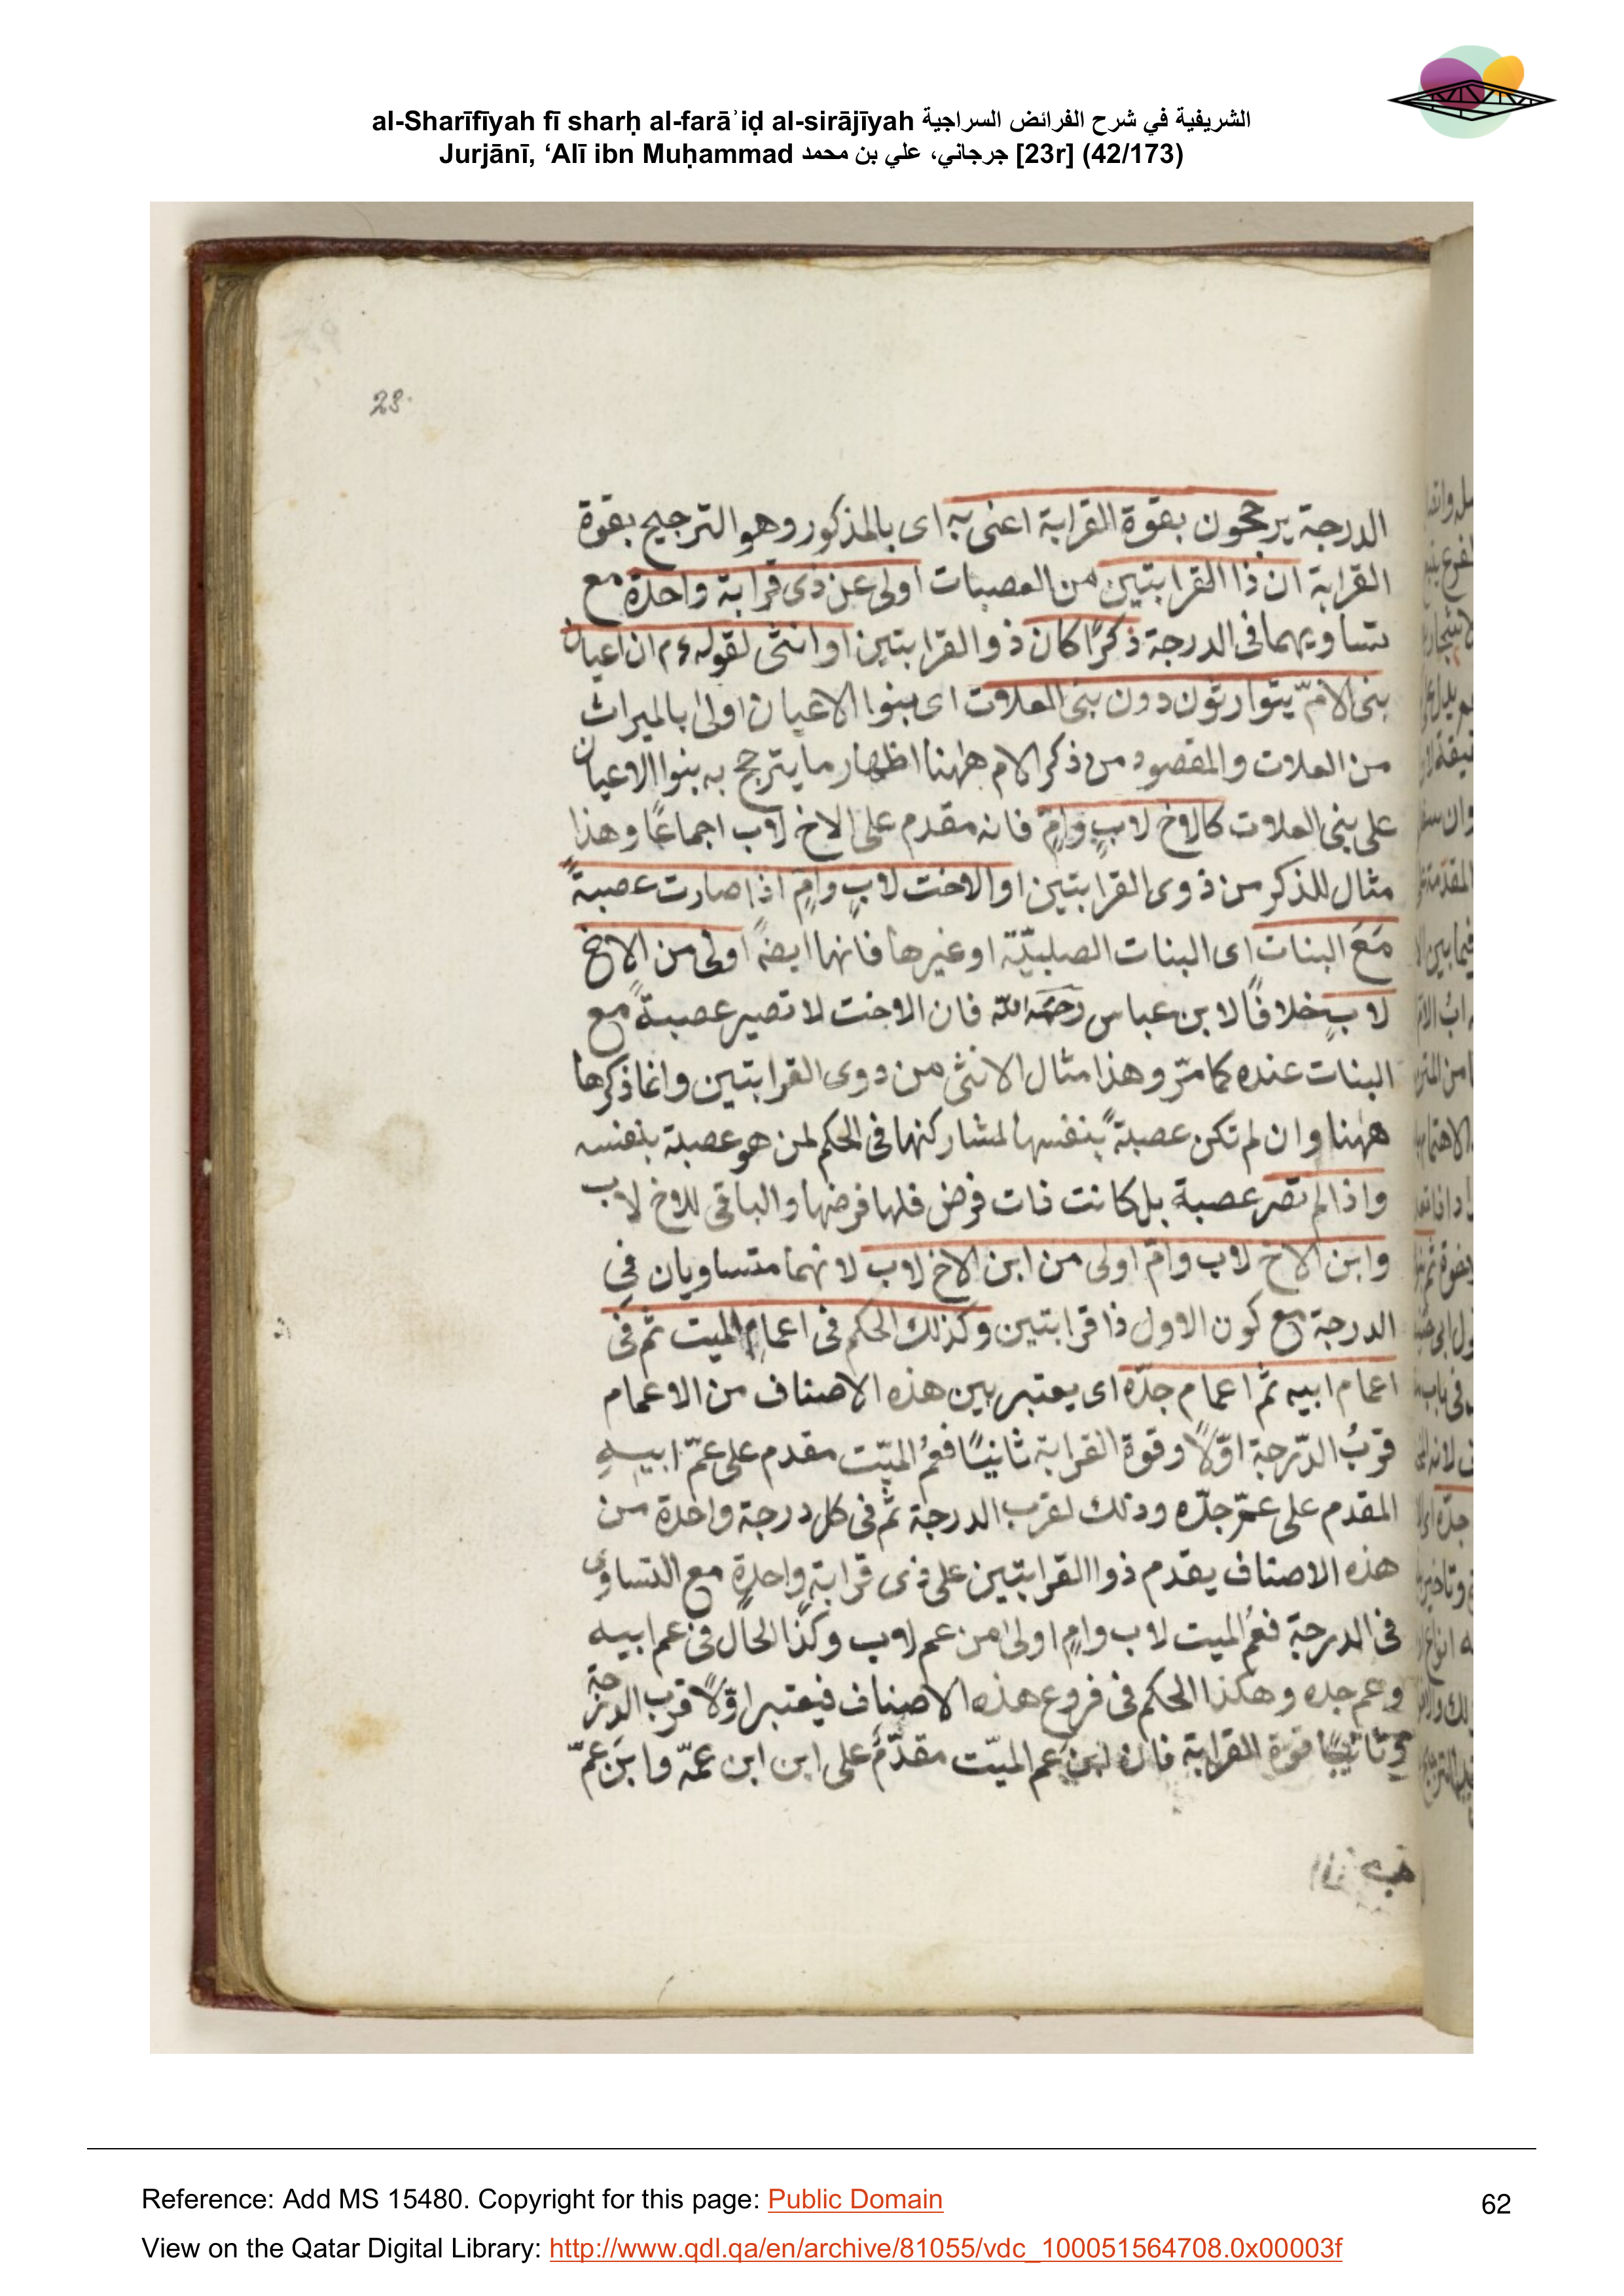 al-Sharīfīyah fī sharḥ al-farāʾiḍ al-sirājīyah الشريفية في شرح الفرائض السراجية
Jurjānī, ‘Alī ibn Muḥammad جرجاني، علي بن محمد [23r] (42/173)
23.
الدرجة يرجحون بقوة القرابة اعنى به اى بالمذكور وهو الترجيح بقوة
القرابة ان ذا القرابتين من العصبات اولى عن ذى قرابة واحدة مع
تساويهما فى الدرجة ذكرًا كان ذو القرابتين او انثى لقوله ءم ان اعيان
بنى الامّ يتوارثون دون بنى العلات اى بنوا الاعيان اولى بالميراث
من العلات والمقصود من ذكر الام ههنا اظهار ما يترجح به بنوا الاعيان
على بنى العلات كالاخ لابٍ وامٍ فانه مقدم على الاخ لاب اجماعًا وهذا
مثال للذكر من ذوى القرابتين او الاخت لابٍ وامٍ اذا صارت عصبةً
مَعَ البنات اى البنات الصلبيّة او غيرها فانها ايضً اولى من الاخ
لابٍ خلافًا لابن عباس رحمة الله فان الاخت لا تصير عصبةً مع
البنات عنده كما مرّ وهذا مثال الانثى من دوى القرابتين وانما ذكرها
ههنا وان لم تكن عصبةً بنفسها لمشاركتها فى الحكم لمن هو عصبة بنفسه
واذا لم تصر عصبة بل كانت ذات فرض فلها فرضها والباقى للاخ لاب
وابن الاخ لاب وامّ اولى من ابن الاخ لاب لانهما متساويان فى
الدرجة مع كون الاول ذا قرابتين وكذلك الحكم فى اعمام الميت ثم فى
اعمام ابيه ثم اعمام جدّه اى يعتبر بين هذه الاصناف من الاعمام
قربُ الدّرجة اوّلاً وقوة القرابة ثانيًا فعُم الميّت مقدم على عمّ ابيهِ
المقدم على عمّ جدّه وذلك لقرب الدرجة ثم فى كل درجة واحدة من
هذه الاصناف يقدم ذوا القرابتين على ذى قرابةٍ واحدةٍ مع التساوى
فى الدرجة فعُم الميت لاب وامٍ اولى من عم لاب وكذا الحال فى عم ابيه
وعم جده وهكذا الحكم فى فروع هذه الاصناف فيعتبر اوّلاً قرب الدرجة
وثانيًا قوة القرابة فان ابن عم الميّت مقدّم على ابن ابن عمّه وابن عمّ
Reference: Add MS 15480. Copyright for this page: Public Domain
62
View on the Qatar Digital Library: http://www.qdl.qa/en/archive/81055/vdc_100051564708.0x00003f